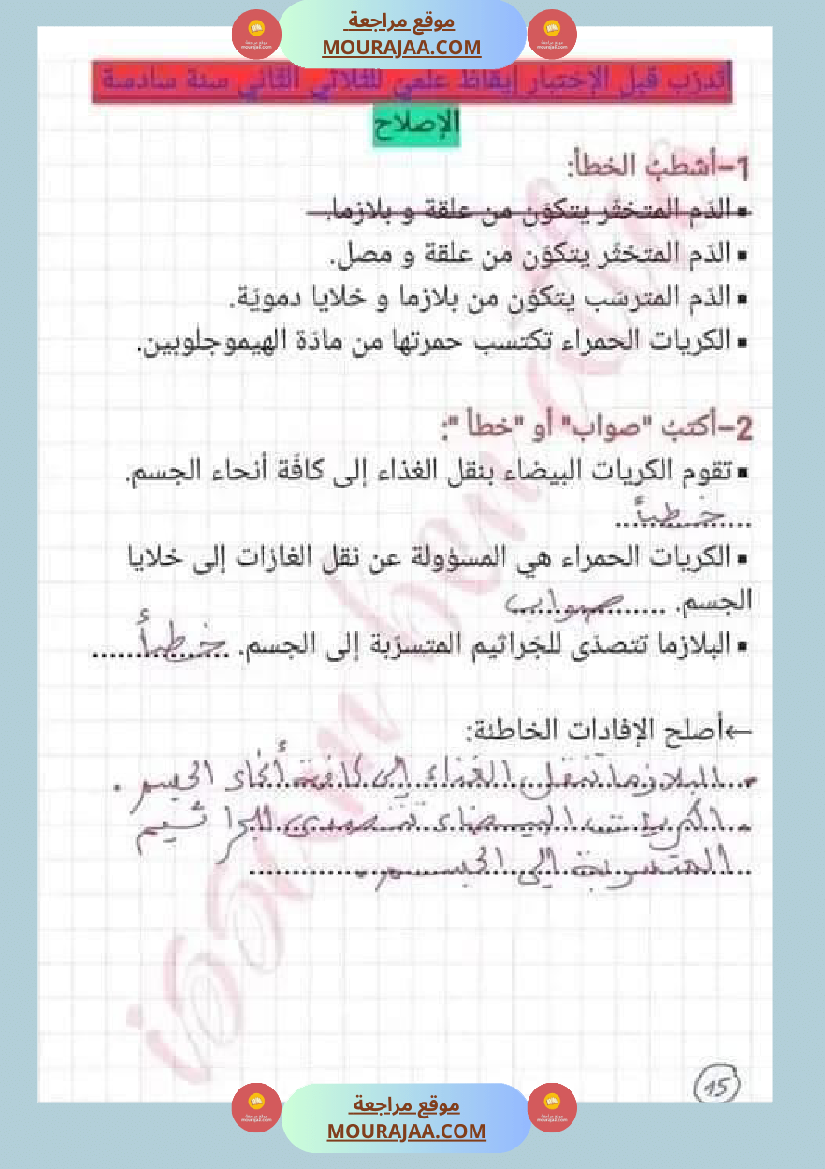 موقع مراجعة
MOURAJAA.COM
أتدرّب قبل الإختبار إيقاظ علمي للثلاثي الثّاني سنة سادسة
الإصلاح
1–أشطبُ الخطأ:
▪ الدّم المتخثّر يتكوّن من علقة و بلازما.
▪ الدّم المتخثّر يتكوّن من علقة و مصل.
▪ الدّم المترسّب يتكوّن من بلازما و خلايا دمويّة.
▪ الكريات الحمراء تكتسب حمرتها من مادّة الهيموجلوبين.
2–أكتبُ "صواب" أو "خطأ ":
▪ تقوم الكريات البيضاء بنقل الغذاء إلى كافّة أنحاء الجسم.
خطأ
▪ الكريات الحمراء هي المسؤولة عن نقل الغازات إلى خلايا
الجسم. صواب
▪ البلازما تتصدّى للجَراثيم المتسرّبة إلى الجسم. خطأ
←أصلح الإفادات الخاطئة:
البلازما تنقل الغذاء إلى كافة أنحاء الجسم.
الكريات البيضاء تتصدى للجراثيم
المتسربة إلى الجسم.
15
موقع مراجعة
MOURAJAA.COM